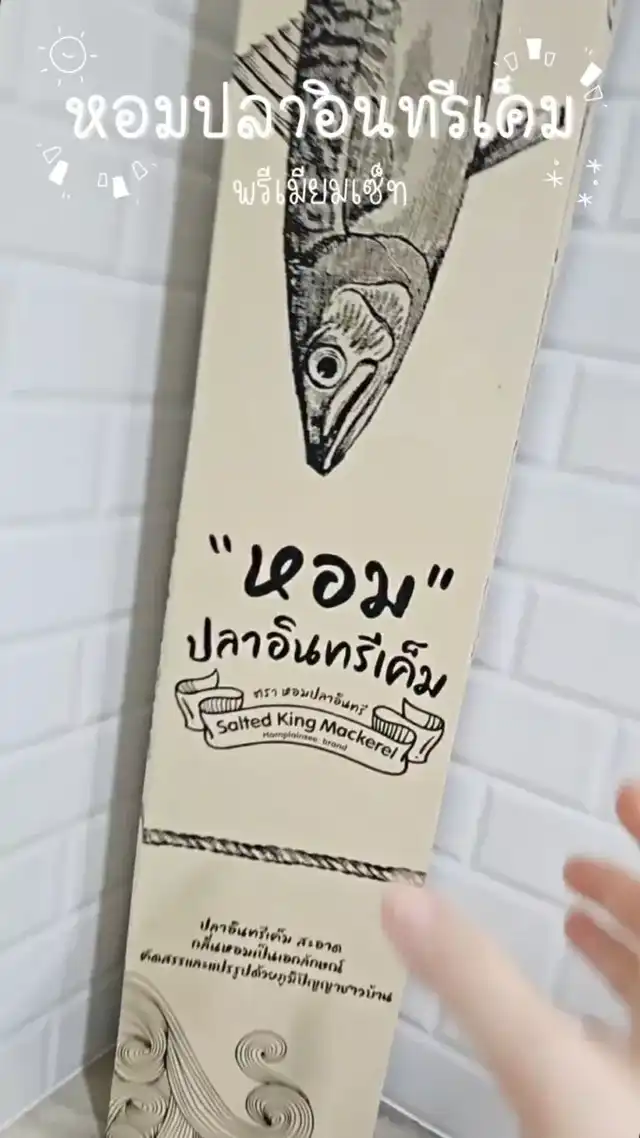 หอมปลาอินทรีเค็ม
พรีเมียมเซ็ท
"หอม"
ปลาอินทรีเค็ม
ตรา หอมปลาอินทรี
Salted King Mackerel
Homplaintee brand
ปลาอินทรีเค็ม สะอาด
กลิ่นหอมเป็นเอกลักษณ์
คัดสรรและแปรรูปด้วยภูมิปัญญาชาวบ้าน